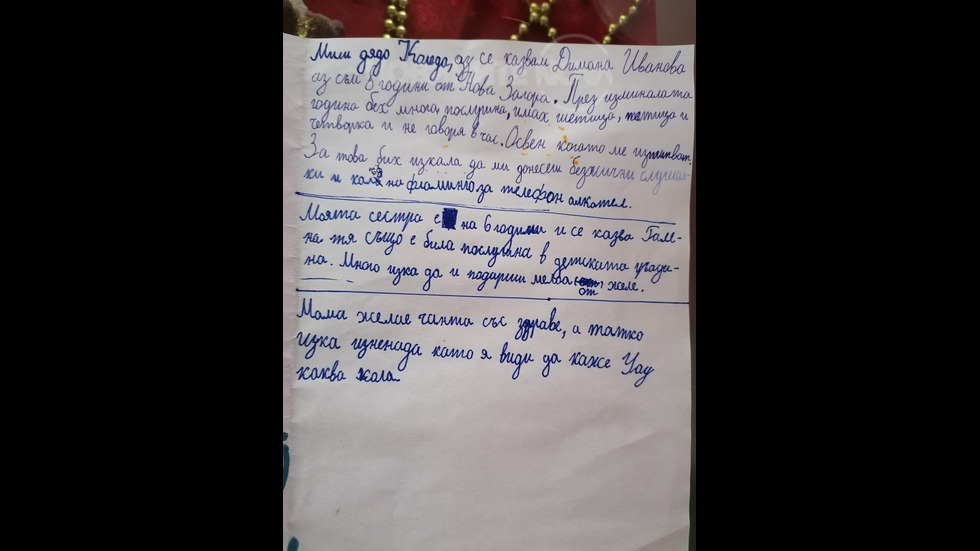 Мили дядо Коледа, аз се казвам Димана Иванова
аз съм 8 години от Нова Загора. През изминалата
година бях много послушна, имах шетица, петица и
четворка и не говоря в час. Освен когато ме изпитват.
За това бих изкала да ми донесеш безжични слушал-
ки и на фламинго за телефон алкател.
Моята сестра е на 6 години и се казва Гам-
на тя също е била послушна в детската гради-
на. Много изка да и подариш мека от желе.
Мама желае чанта със здраве, а татко
изка изненада като я види да каже Уау
каква кола.